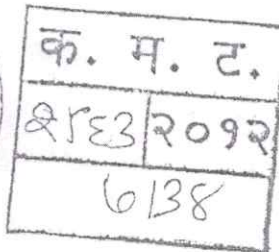 क. म. ट.
२८६३ २०१२
७/३४